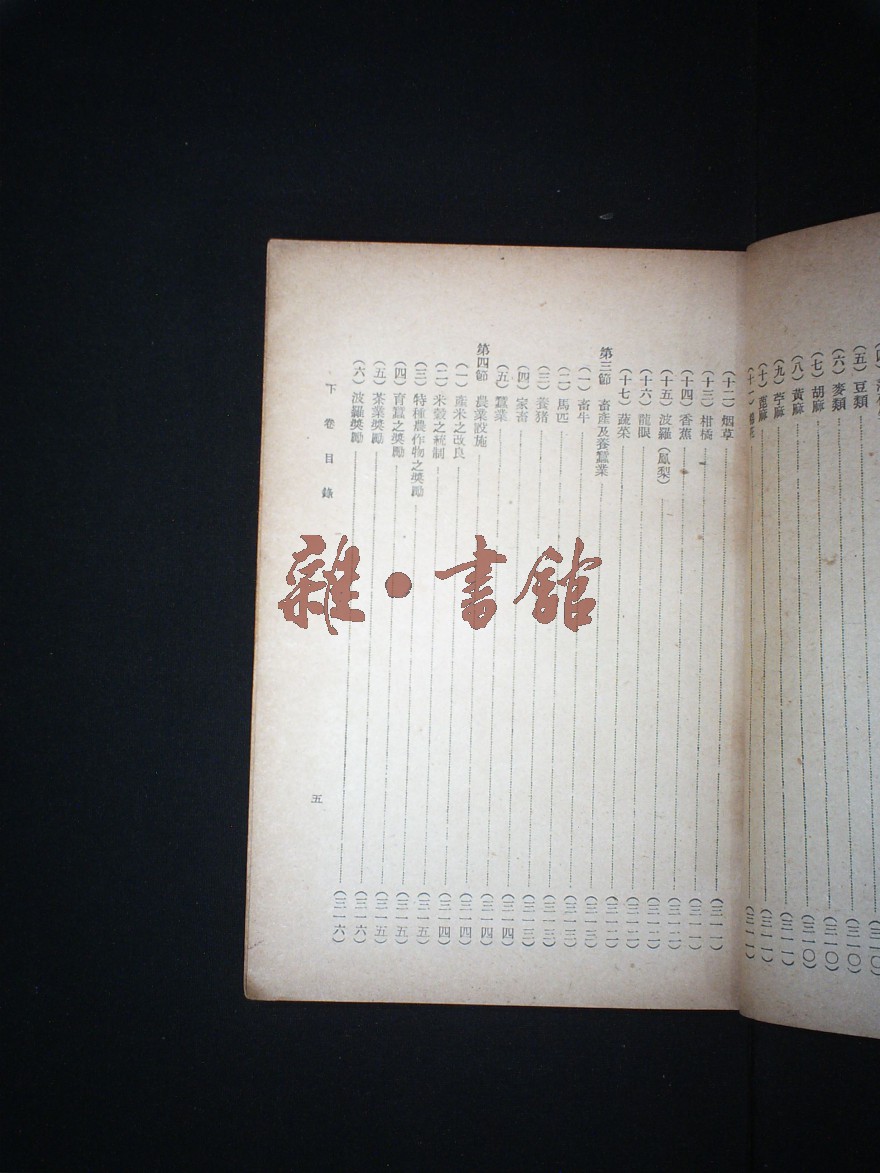 (五)豆類……(三一〇)
(六)麥類……(三一〇)
(七)胡麻……(三一〇)
(八)黃麻……(三一〇)
(九)苧麻……(三一一)
(十)蓖麻……(三一一)
(十一)棉花……(三一一)
(十二)烟草……(三一一)
(十三)柑橘……(三一一)
(十四)香蕉……(三一二)
(十五)波羅(鳳梨)……(三一二)
(十六)龍眼……(三一二)
(十七)蔬菜……(三一二)
第三節 畜產及養蠶業……(三一三)
(一)畜牛……(三一三)
(二)馬匹……(三一三)
(三)養猪……(三一三)
(四)家畜……(三一四)
(五)蠶業……(三一四)
第四節 農業設施……(三一四)
(一)產米之改良……(三一四)
(二)米穀之統制……(三一五)
(三)特種農作物之獎勵……(三一五)
(四)育蠶之獎勵……(三一五)
(五)茶業獎勵……(三一六)
(六)波羅獎勵……(三一六)
下卷目錄
五
雜·書館